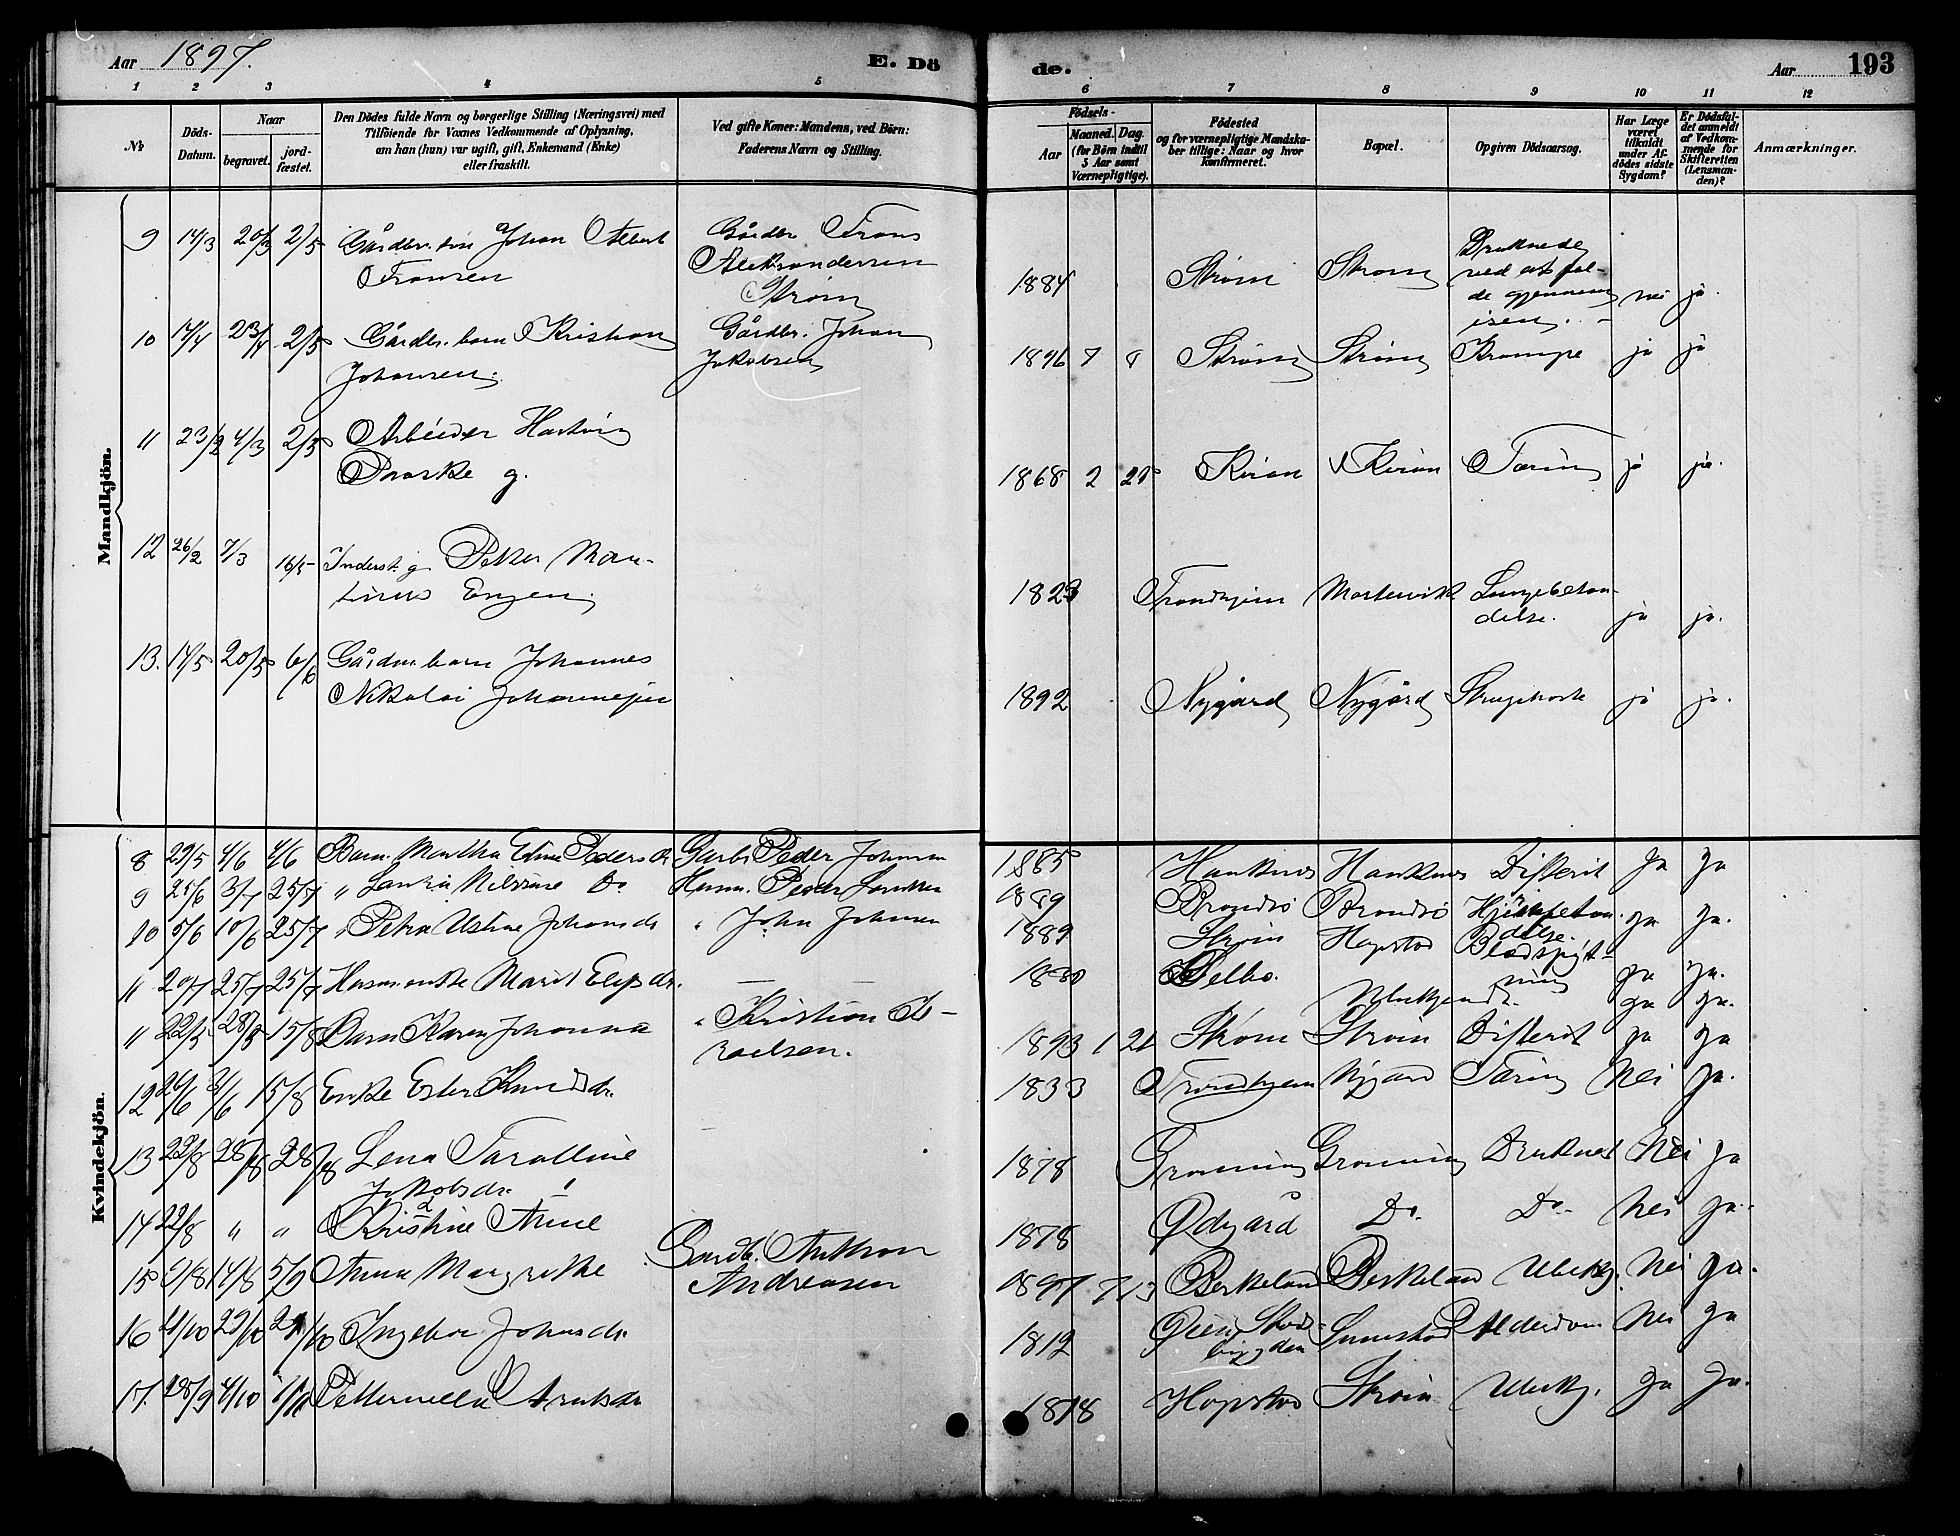 Aar 1897.
E. Dö
de.
Aar
193
1 2 3 4 5 6 7 8 9 10 11 12
№
Döds-
Datum.
Naar
begravet.
jord-
fæstet.
Den Dödes fulde Navn og borgerlige Stilling (Næringsvei) med
Tilföiende for Voxnes Vedkommende af Oplysning,
om han (hun) var ugift, gift, Enkemand (Enke)
eller fraskilt.
Ved gifte Koner: Mandens, ved Börn:
Faderens Navn og Stilling.
Födsels-
Aar
Maaned. Dag.
(for Börn indtil
5 Aar samt
Værnepligtige).
Födested
og for værnepligtige Mandska-
ber tillige: Naar og hvor
konfirmeret.
Bopæl.
Opgiven Dödsaarsag.
Har Læge
været
tilkaldt
under Af-
dödes sidste
Sygdom?
Er Dödsfal-
det anmeldt
af Vedkom-
mende for
Skifteretten
(Lensman-
den)?
Anmærkninger.
Mandkjön.
9 14/3 20/3 2/5 Gårdbr. sön Johan Albert
Fransen
Gårdbr. Frans
Aleksandersen
Strøm
1884 Strøm Strøm
Druknede
ved at fal-
de gjennem
isen. nei ja.
10 14/4 23/4 2/5 Gårdbr. barn Kristian
Johansen.
Gårdbr. Johan
Jakobsen
1896 7 8 Strøm Strøm Krampe ja ja
11 23/2 4/3 2/5 Arbeider Hartvig
g.
1868 2 25 Kiran Kiran Tæring ja ja.
12 26/2 7/3 16/5 Inderst. g. Peter Mar-
tinus Engen.
1823 Trondhjem Mortenvik Lungebetæn-
delse. ja ja.
13. 14/5 20/5 6/6 Gårdm. barn Johannes
Nikolai Johannessen
1892 Nygård Nygård Strugehoste ja ja.
Kvindekjön.
8 29/5 4/6 4/6 Barn Martha Peders dr Gaardbr Peder Johnsen
1885 Difterit ja ja
9 25/6 3/7 25/7 " Do Husm. Peder
1889 Brandsö Brandsö Hjernebetæn-
delse. ja ja.
10 5/6 10/6 25/7 " Petra Johansdr " John Johnsen
1889 Strøm Hopstad Blodspyt-
ning
11 20/7 25/7 25/7 Husm. enke Marit —
1830 Selbo. Ubekjendt. ja ja.
11 22/5 28/5 15/8 Barn Karen Johanna " Kristian Is-
raelsen.
1893 1 21 Strøm Strøm Difterit ja ja
12 15/8 Enke Ester Knudsdr.
1833 Trondhjem Nygård Tæring Nei ja.
13 22/8 28/8 28/8 Lena
Jakobsdr.
1878 Grønning Grønning Druknet Nei ja
14 22/8 " " Kristine
1878 Ødgård Do. Do. Nei ja.
15 9/8 14/8 5/9 Anna Margrethe Gaardb. Anthon
Andreasen
1897 7 13 Berkeland Berkeland Ubekj. Nei ja.
16 21/10 29/10 Ingebor Johnsdr.
1812 Stads-
bygden Alderdom Nei ja
17. 28/9 4/10 Petternella
1878 Hopstad Strøm Ubekj. ja ja.